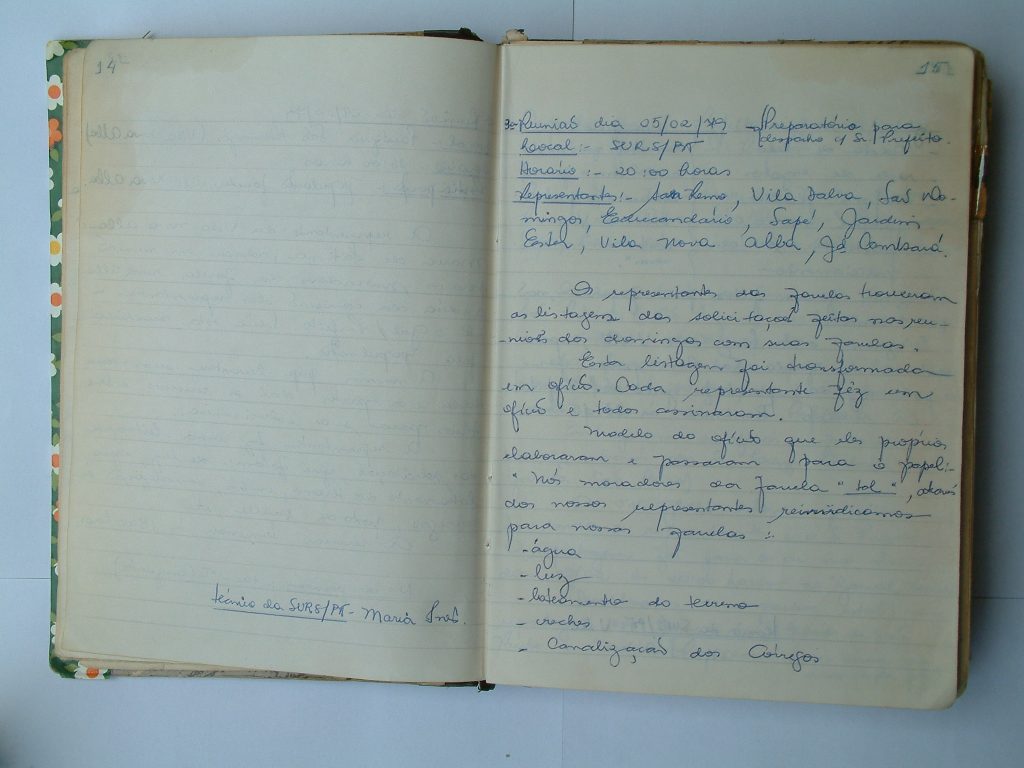 14
técnico da SURS/PT - Maria Inês.
15
3ª Reunião dia 05/02/79 - Preparatória para
despacho c/ Sr. Prefeito.
Local:- SURS/PT
Horário:- 20:00 horas
Representantes:- San Remo, Vila Dalva, São Do-
mingos, Educandário, Sapé, Jardim
Ester, Vila Nova Alba, Jd. Camboré.
Os representantes das favelas trouxeram
as listagem das solicitação feitas nas reu-
-niões dos domingos com suas favelas.
Esta listagem foi transformada
em ofício. Cada representante fêz um
ofício e todos assinaram.
Modelo do ofício que eles próprios
elaboraram e passaram para o papel:-
"Nós moradores da favela "tal", através
dos nossos representantes reinvidicamos
para nossas favelas:-
- água
- luz
- loteamento do terreno
- creches
- Canalização dos Córregos